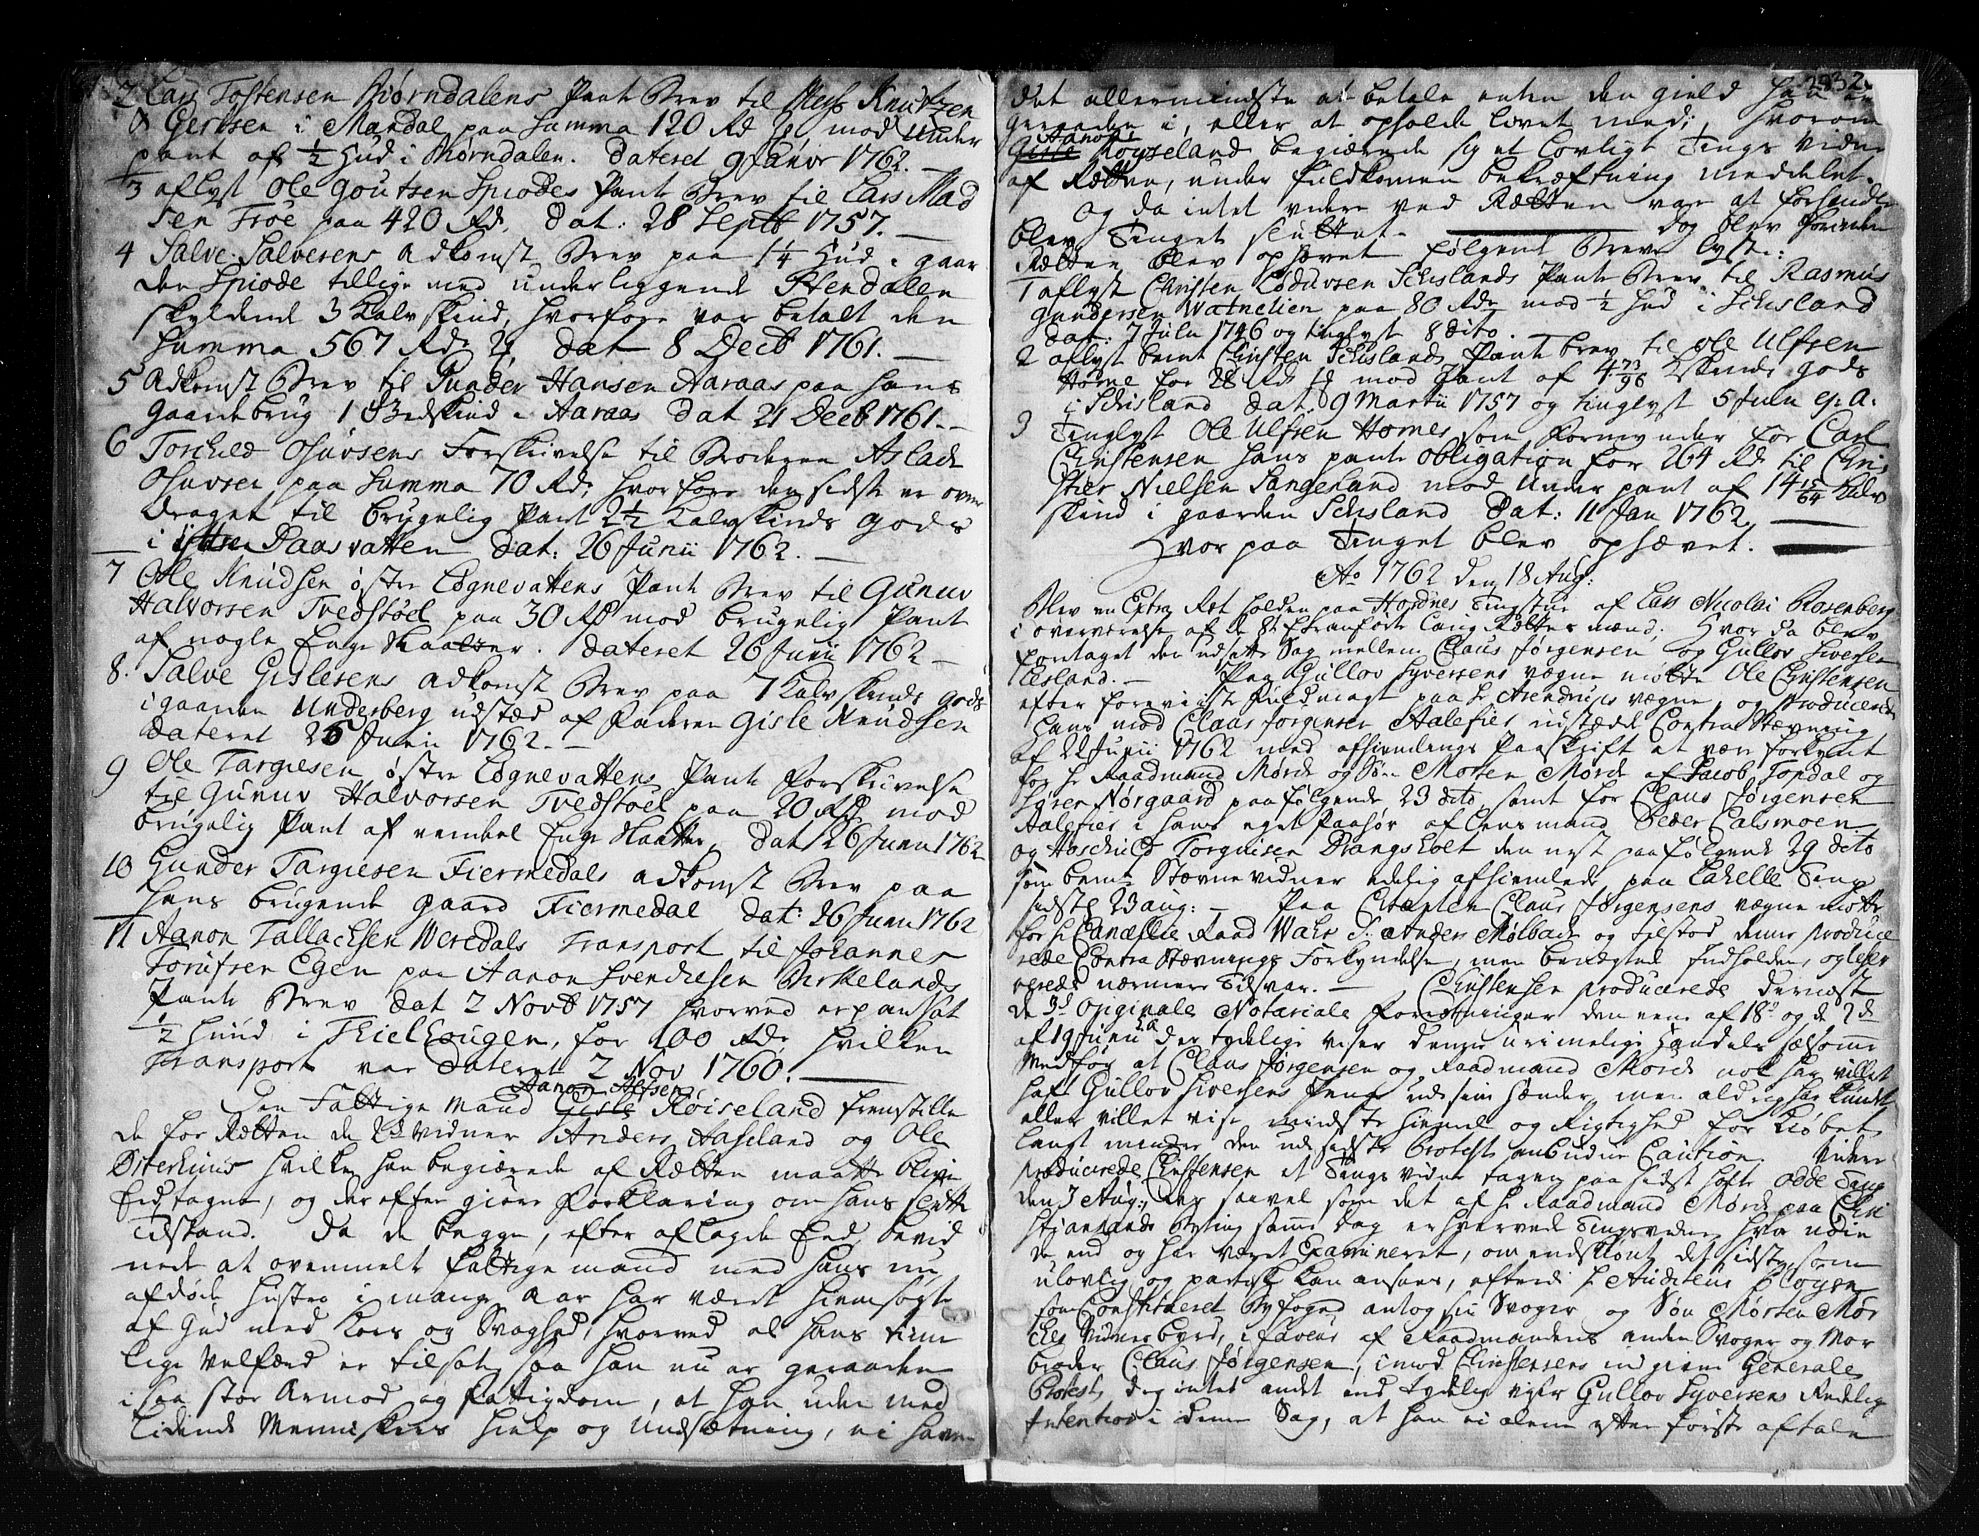 2 Lars Tostensen Biørndalens Pante Brev til Knutzen
& Gertsen i Mandal paa Summa 120 Rd mod under
pant af ½ Hud i Biørndalen. Dateret 9 Janvr 1762. —
3 aflyst Ole Goutsen Spiodes Pante Brev til Lars Mad
sen Froe paa 420 Rd. Dat: 28 Septb 1757. —
4 Salve Salvesens Adkomst Brev paa 1¼ Hud i gaar
den Spiode tillige med underliggende Stendalen
skyldende 3 Kalvskind, hvorfore var betalt den
Summa 567 Rdr Dat 8 Decb 1761. —
5 Adkomst Brev til Gunder Hansen Aaraas paa hans
gaardebrug 1 Bedskind i Aaraas Dat 21 Decb 1761. —
6 Torkild Osuvsens Forskrivelse til Broderen Aslach
Osuvsen paa Summa 70 Rdr, hvorfore den sidste er over
draget til brugelig Pant 2½ Kalvskinds gods
i Paasvatten Dat: 26 Junii 1762. —
7 Ole Knudsen østre Lognevattens Pante Brev til Gunuv
Halvorsen Tvedstøel paa 30 Rd mod brugelig Pant
af nogle Enge Slaatter. Dateret 26 Junii 1762 —
8. Salve Gislesens Adkomst Brev paa 7 Kalvskinds gods
i gaarden Underberg udstæd af Faderen Gisle Knudsen
dateret 26 Junii 1762. —
9 Ole Targiesen østre Lognevattens Pante Forskrivelse
til Gunuv Halvorsen Tvedstøel paa 20 Rd mod
brugelig Pant af nembel Enge Slaatter, Dat 26 Junii 1762
10 Gunder Targiesen Fiermedals adkomst Brev paa
hans brugende gaard Fiermedal Dat: 26 Junii 1762
11 Aanon Tallachsen Weredals Transport til Johannes
Torufsen Egen paa Aanon Svenchesen Birkelands
Pante Brev Dat 2 Novb 1757 hvorved er pansat
½ Huud i Thielhougen, for 100 Rdr hvilken
Transport var dateret 2 Nov 1760. —
Aanon Alfsen
Den Fattige Mand Gisle Røiseland fremstille
de for Rætten de 2de Vidner Anders Aaseland og Ole
Østerhuus hvilke han begiærede af Rætten maatte blive
Eed tagne, og derefter giøre Forklaring om hans slette
Tilstand. Da de begge, efter aflagde Eed, bevid
nede at ovenmelte fattige mand med hans nu
afdøde Hustro i mange Aar har været hiemsøgte
af Gud med Kors og Svaghed, hvorved al hans time
lige Velfærd er tilsat, saa han nu er geraaden
i saa stor Armod og fattigdom, at han uden med
lidende Menniskers hielp og Undsætning, ei haver
2832
det allermindste at betale enten den gield han er
geraaden i, eller at opholde livet med; hvorom
Aanon
Gisle Røyseland begiærede sig et lovligt Tings Vidne
af Rætten, under fuldkomen bekræftning meddelet.
Og da intet videre ved Rætten var at forhandle
blev Tinget sluttet. — dog blev forinden
Rætten blev ophævet følgende Breve lyst:
1 aflyst Christen Loduvsen Schislands Pante Brev til Rasmus
Gundersen Watnelien paa 80 Rdr mod ½ Hud i Schisland
dat: 7 Julii 1746 og tinglyst 8 dito. —
2 aflyst bemte Christen Schislands Pante brev til Ole Ulfsen
Home for 28 Rd mod Pant af 4 73/96 Skinds gods
i Schisland Dat 9 Martii 1757 og tinglyst 5 Julii ej. a.
3 Tinglyst Ole Ulfsen Homes som Formynder for Carl
Christensen hans pante obligation for 264 Rdr til Chri
stier Nielsen Sangeland mod Under pant af 14 15/64 Kalv
skind i gaarden Schisland Dat: 11 Jan 1762
Hvor paa Tinget blev ophævet. —
Ao 1762 den 18 Aug:
Blev en Extra Ret holden paa Hordnes Tingstue af Lars Nicolai Rosenberg
i overværelse af de 8te Laug Rættes mænd; Hvor da blev
foretaget den udsatte Sag mellem Claus Jørgensen og Gullov Siversen
Lisland. — Paa Gullov Syversens vegne mødte Ole Christensen
efter foreviist Fuldmagt paa Hr Arendrups vegne, og Producerede
hans mod Claus Jørgensen Aalefier udstædde Contra Stævning
af 22 Junii 1762 med afhiemlings Paaskrift at være forkyndt
for Hr Raadmand Mørch og Søn Morten Mørch af Jacob Topdal og
Syren Nørgaard paafølgende 23 dito, samt for Claus Jørgensen
Aalefier i hans eget Paahør af Lensmand Peder Calsmoen
og Hoschuld Torgrusen Drangsholt den nest paafølgende 29 dito
som bemte Stævnevidner edelig afhiemlede paa Lahelle Ting
sidstl 23 aug: — Paa Citanten Claus Jørgensens vegne mødte
for Hr Cancellie Raad Wahr Sr Anders Mølbach og tilstod denne produce
rede Contra Stævnings Forkyndelse, men benægtede Indholden,
nærmere Tilsvar. — Christensen producerede dernæst
de 3de Originale Notariale Forretninger den eene af 18de og de 2de
af 19 Junii der tydelig viser denne urimelige Handels sælsomme
Medfør at Claus Jørgensen og Raadmand Mørch nok har villet
haft Gullov Siversens Penge udi sine Hænder, men aldrig har kundet
eller villet vise mindste hiemmel og Rigtighed for Kiøbet
langt mindre den udi sidste Protest anbudne Caution. Videre
producerede Christensen et Tings vidne tagen paa sidst holte Odde Ting
den 3 Aug:, der saavel som det af Hr Raadmand Mørch paa Chri
stiansands Byting samme dag erhvervede Tingsvidne
de end og har været Examineret, om endskiønt det sidste som
ulovlig og partisk kan ansees, efterdi Hr Auditeur
som Constitueret Byfoged antog sin Svoger og Søn Morten Mør
ches Vidnesbyrd, i faveur af Raadmandens anden Svoger og Mor
broder Claus Jørgensen, imod Christensens indgivne Generale
Protest, dog intet andet end tydelig viser Gullov Syversens Redelige
Intention i denne Sag, at han ei alene efter første aftale